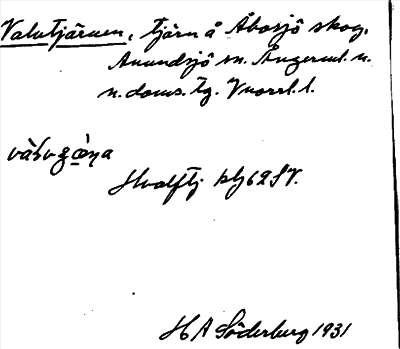 Valvtjärnen, tjärn å Åbosjö skog,
Anundsjö sn. Ångerml. n.
n. doms. tg. Vnorrl. l.
Hvalftj blg 62 SV.
H A Söderberg 1931